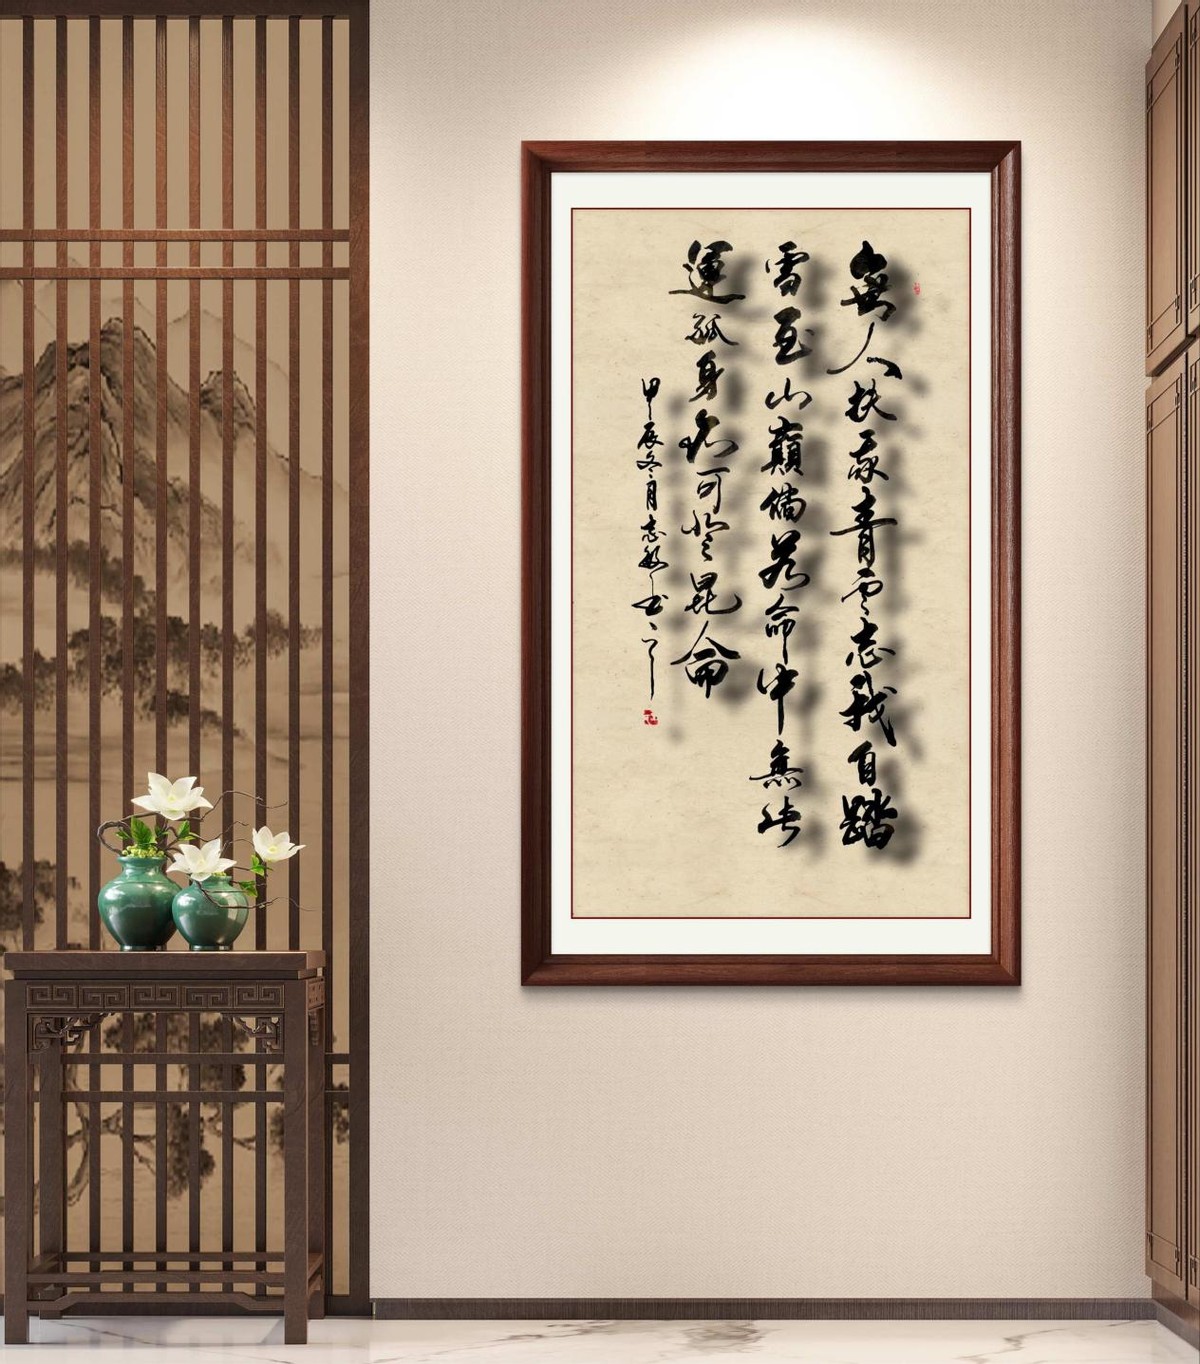 無人扶我青雲志我自踏
雪至山巔倘若命中無此
運孤身亦可登昆侖
甲辰冬月志敏书